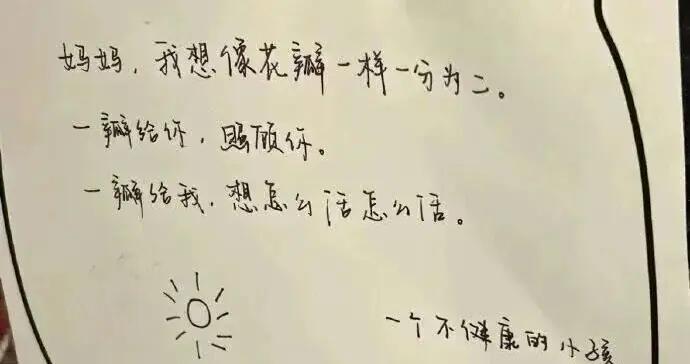 妈妈，我想像花瓣一样一分为二。
一瓣给你，照顾你。
一瓣给我，想怎么活怎么活。
一个不健康的小孩